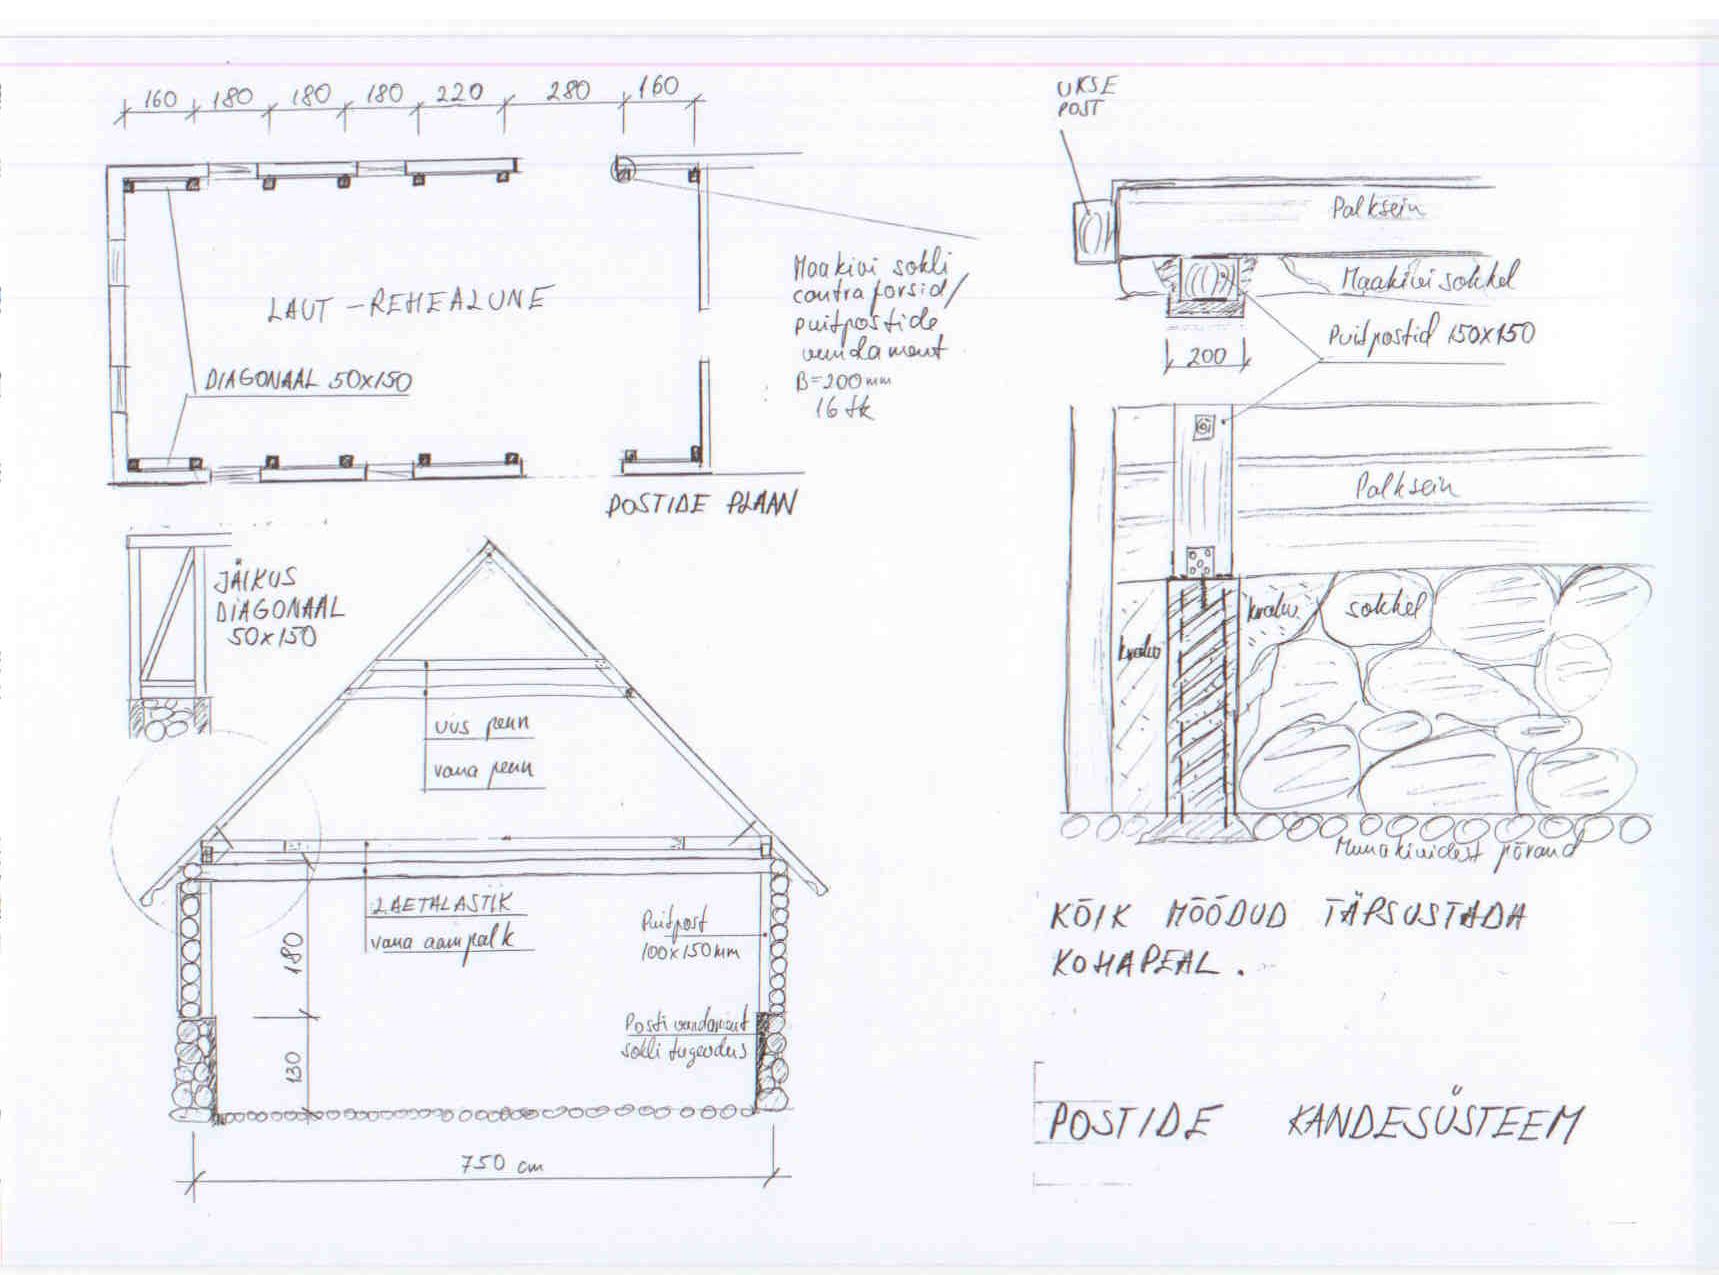 160 180 180 180 220 280 160
LAUT - REHEALUNE
DIAGONAAL 50x150
Maakivi sokli
contraforsid/
puitpostide
vundament
B=200mm
16 tk
POSTIDE PLAAN
JÄIKUS
DIAGONAAL
50x150
uus penn
vana penn
LAETALASTIK
vana aampalk
Puitpost
100x150mm
180
130
Posti vundament
sokli tugevdus
750 cm
UKSE
POST
Palksein
Maakivi sokkel
Puitpostid 150x150
200
Palksein
kvalu
sokkel
kvalu
Munakividest põrand
KÕIK MÕÕDUD TÄPSUSTADA
KOHAPEAL.
POSTIDE KANDESÜSTEEM